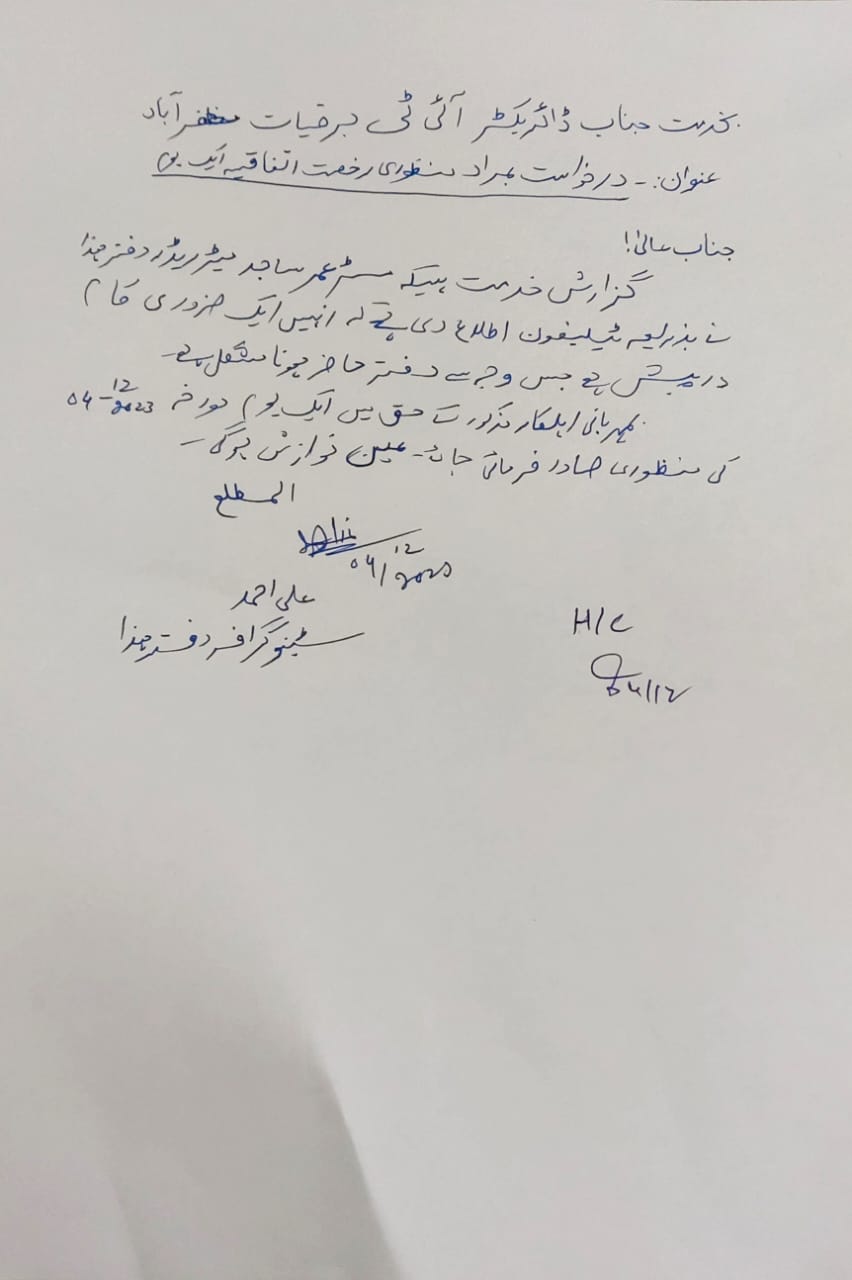 بخدمت جناب ڈائریکٹر آئی ٹی برقیات مظفرآباد
عنوان:۔ درخواست بمراد منظوری رخصت اتفاقیہ ایک یوم
جناب عالی!
گزارش خدمت ہیکہ مسٹر عمر ساجد میٹر ریڈر دفتر ہذا
نے بذریعہ ٹیلیفون اطلاع دی ہے کہ انہیں ایک ضروری کام
درپیش ہے جس وجہ سے دفتر حاضر ہونا مشکل ہے۔
بمہربانی اہلکار مذکور کے حق میں ایک یوم مورخہ 04-12-2023
کی منظوری صادر فرمائی جائے۔ عین نوازش ہوگی۔
المطلع
04/12/2023
علی احمد
سٹینوگرافر دفتر ہذا
H/C
04/12